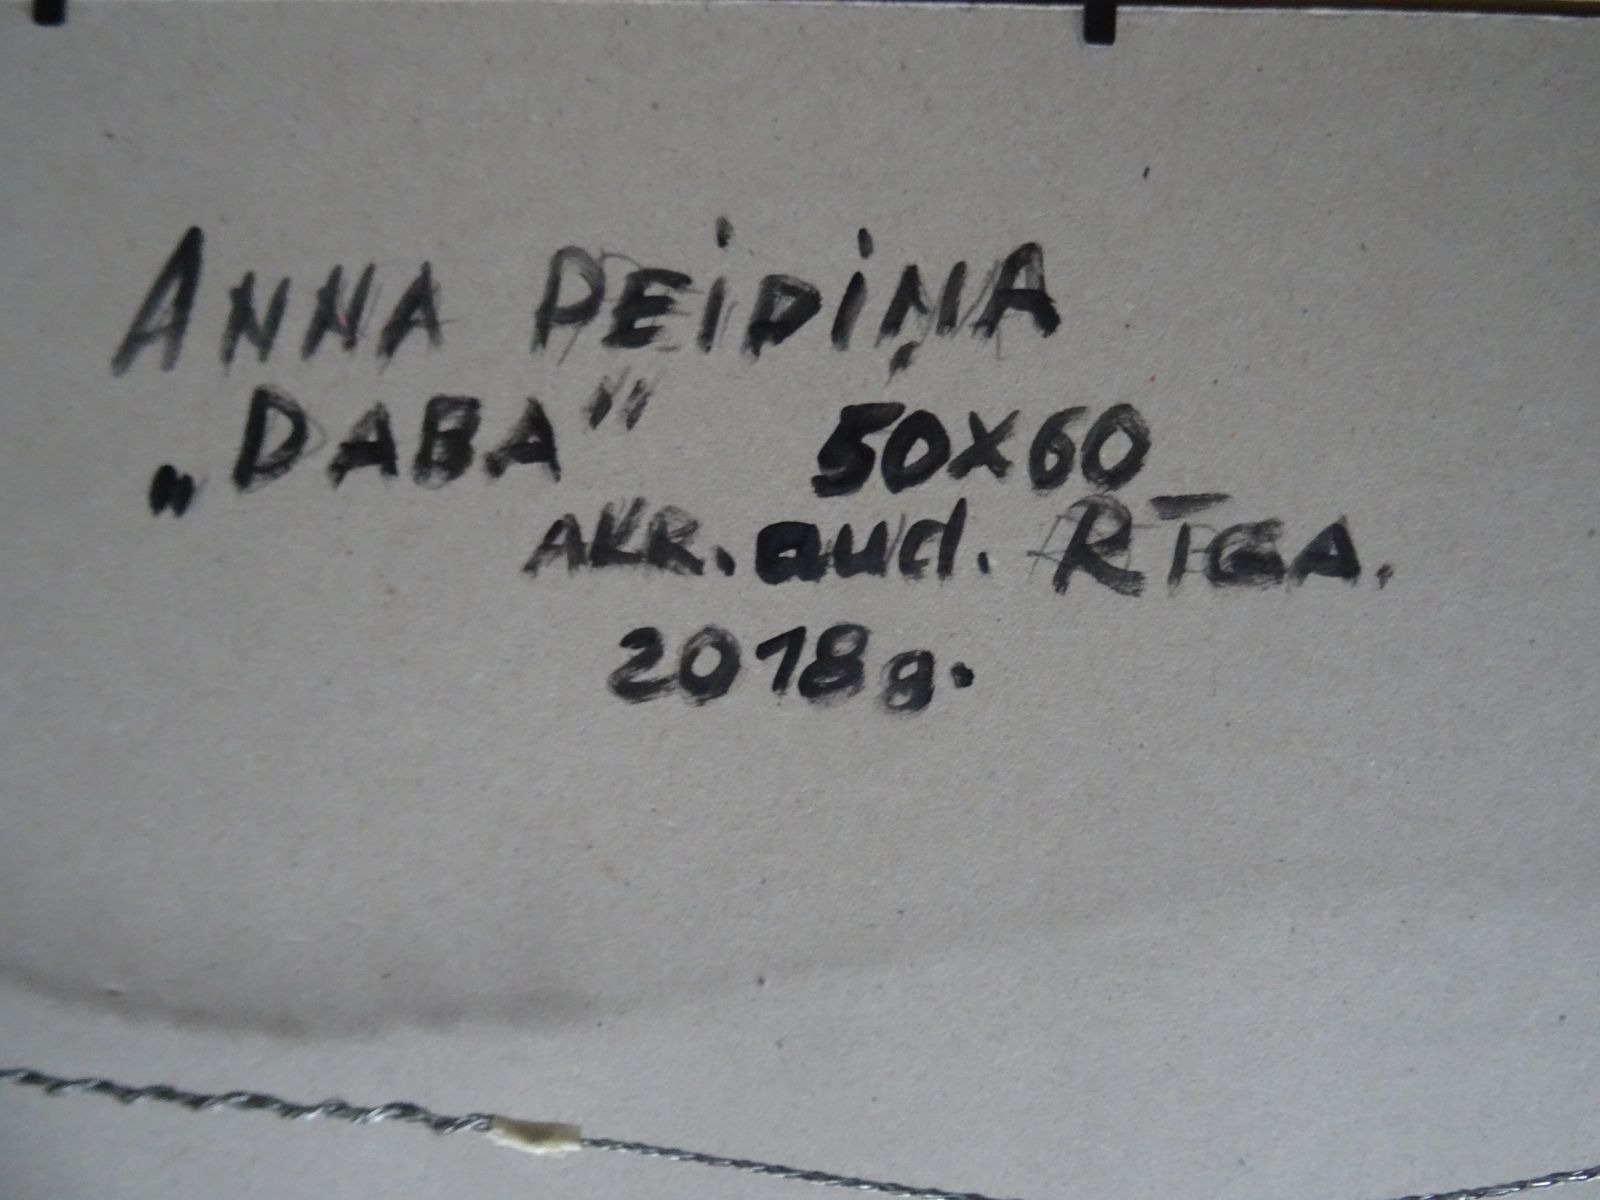 ANNA PEiDiŅA
„DABA" 50X60
AKR. aud. RĪGA.
2018 g.